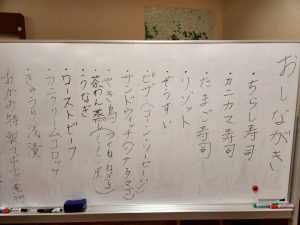 おしながき
・ちらし寿司
・カニカマ寿司
・たまご寿司
・リゾット
・ぞうすい
・ピザ(コーン・ソーセージ)
・サンドウィッチ(ツナ・タマゴ)
・やき鳥(つくね・ねぎま)
・茶わん蒸し
・うなぎ
・ローストビーフ
・カニクリームコロッケ
・きゅうり浅漬
おかみ特製